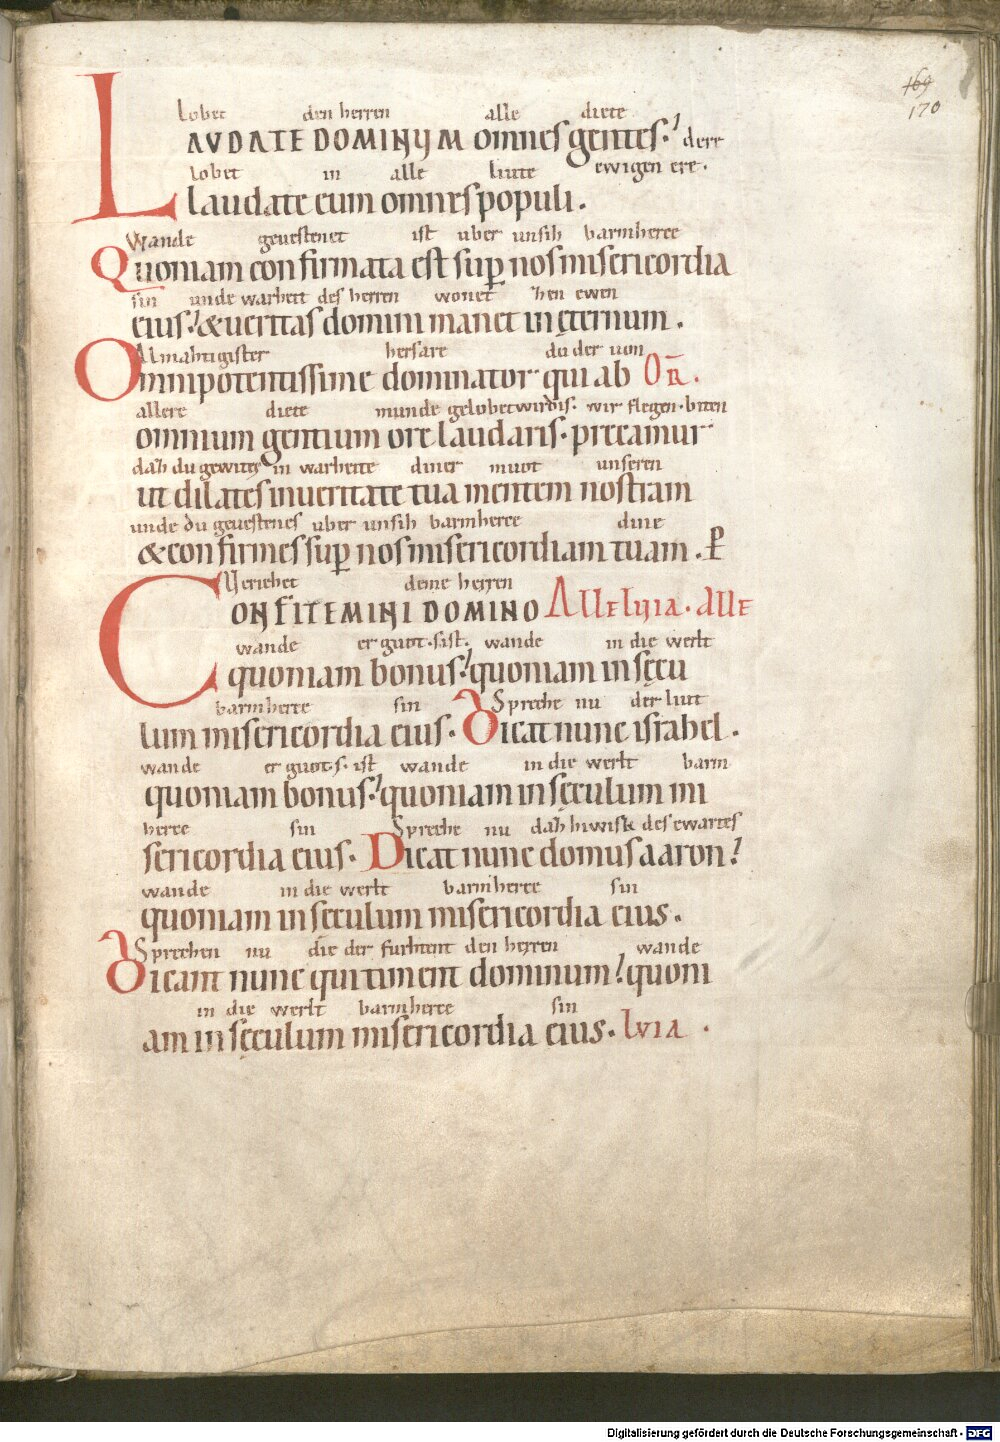 169
170
Lobet den herren alle diete
LAVDATE DOMINUM omnes gentes. derr
lobet in alle liute ewigen ere.
Laudate eum omnes populi.
Wande geuestenet ist uber unsih barmherce
Quoniam confirmata est sup nos misericordia
sin unde warheit des herren wonet hen ewen
eius. & ueritas domini manet in ęternum.
Almahtigister hersare du der uon
Omnipotentissime dominator qui ab Or̄.
allere diete munde gelobet wirdis. wir flegen. biten
omnium gentium ore laudaris. precamur
daz du gewites in warheite diner muot unseren
ut dilates in ueritate tua mentem nostram
unde du geuestenes uber unsih barmherce dine
& confirmes sup nos misericordiam tuam. P
Veriehet deme herren
CONFITEMINI DOMINO ALLELUIA. ALLE
wande er guot. s. ist. wande in die werlt
quoniam bonus. quoniam in sęcu
barmherce sin Spreche nu der liut
lum misericordia eius. Dicat nunc israhel.
wande er guot. s. ist wande in die werlt barm
quoniam bonus. quoniam in sęculum mi
herce sin Spreche nu daz hiwisk des ewartes
sericordia eius. Dicat nunc domus aaron.
wande in die werlt barmherce sin
quoniam in seculum misericordia eius.
Sprechen nu die der furhtent den herren wande
Dicant nunc qui timent dominum. quoni
in die werlt barmherce sin
am in sęculum misericordia eius. LVIA.
Digitalisierung gefördert durch die Deutsche Forschungsgemeinschaft - DFG